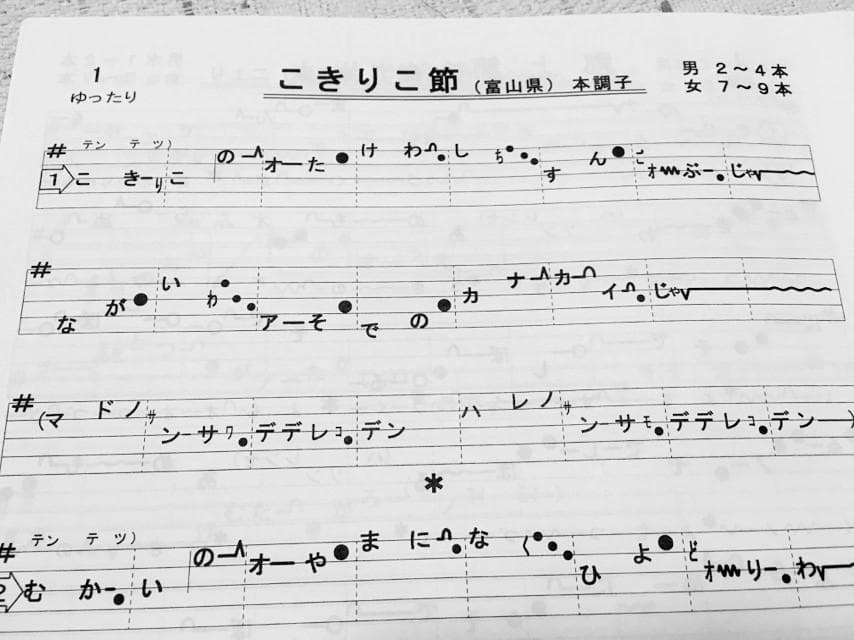 1
ゆったり
こきりこ節(富山県) 本調子
男 2～4本
女 7～9本
# テン テ ツ)
1 こ きーりこ の一オーた け わ し ち す ん こ オ ぶー じゃ
#
な が い わ アーそ で の カ ナーカー イ じゃ
#
(マ ド ノ サ ンーサ ワ デデレコ デン ハ レノ サ ンーサモ デデレコ デンー)
*
# テン テ ツ)
2 む かーい の一オーや ま に な く ひ よ ど オ りーわ